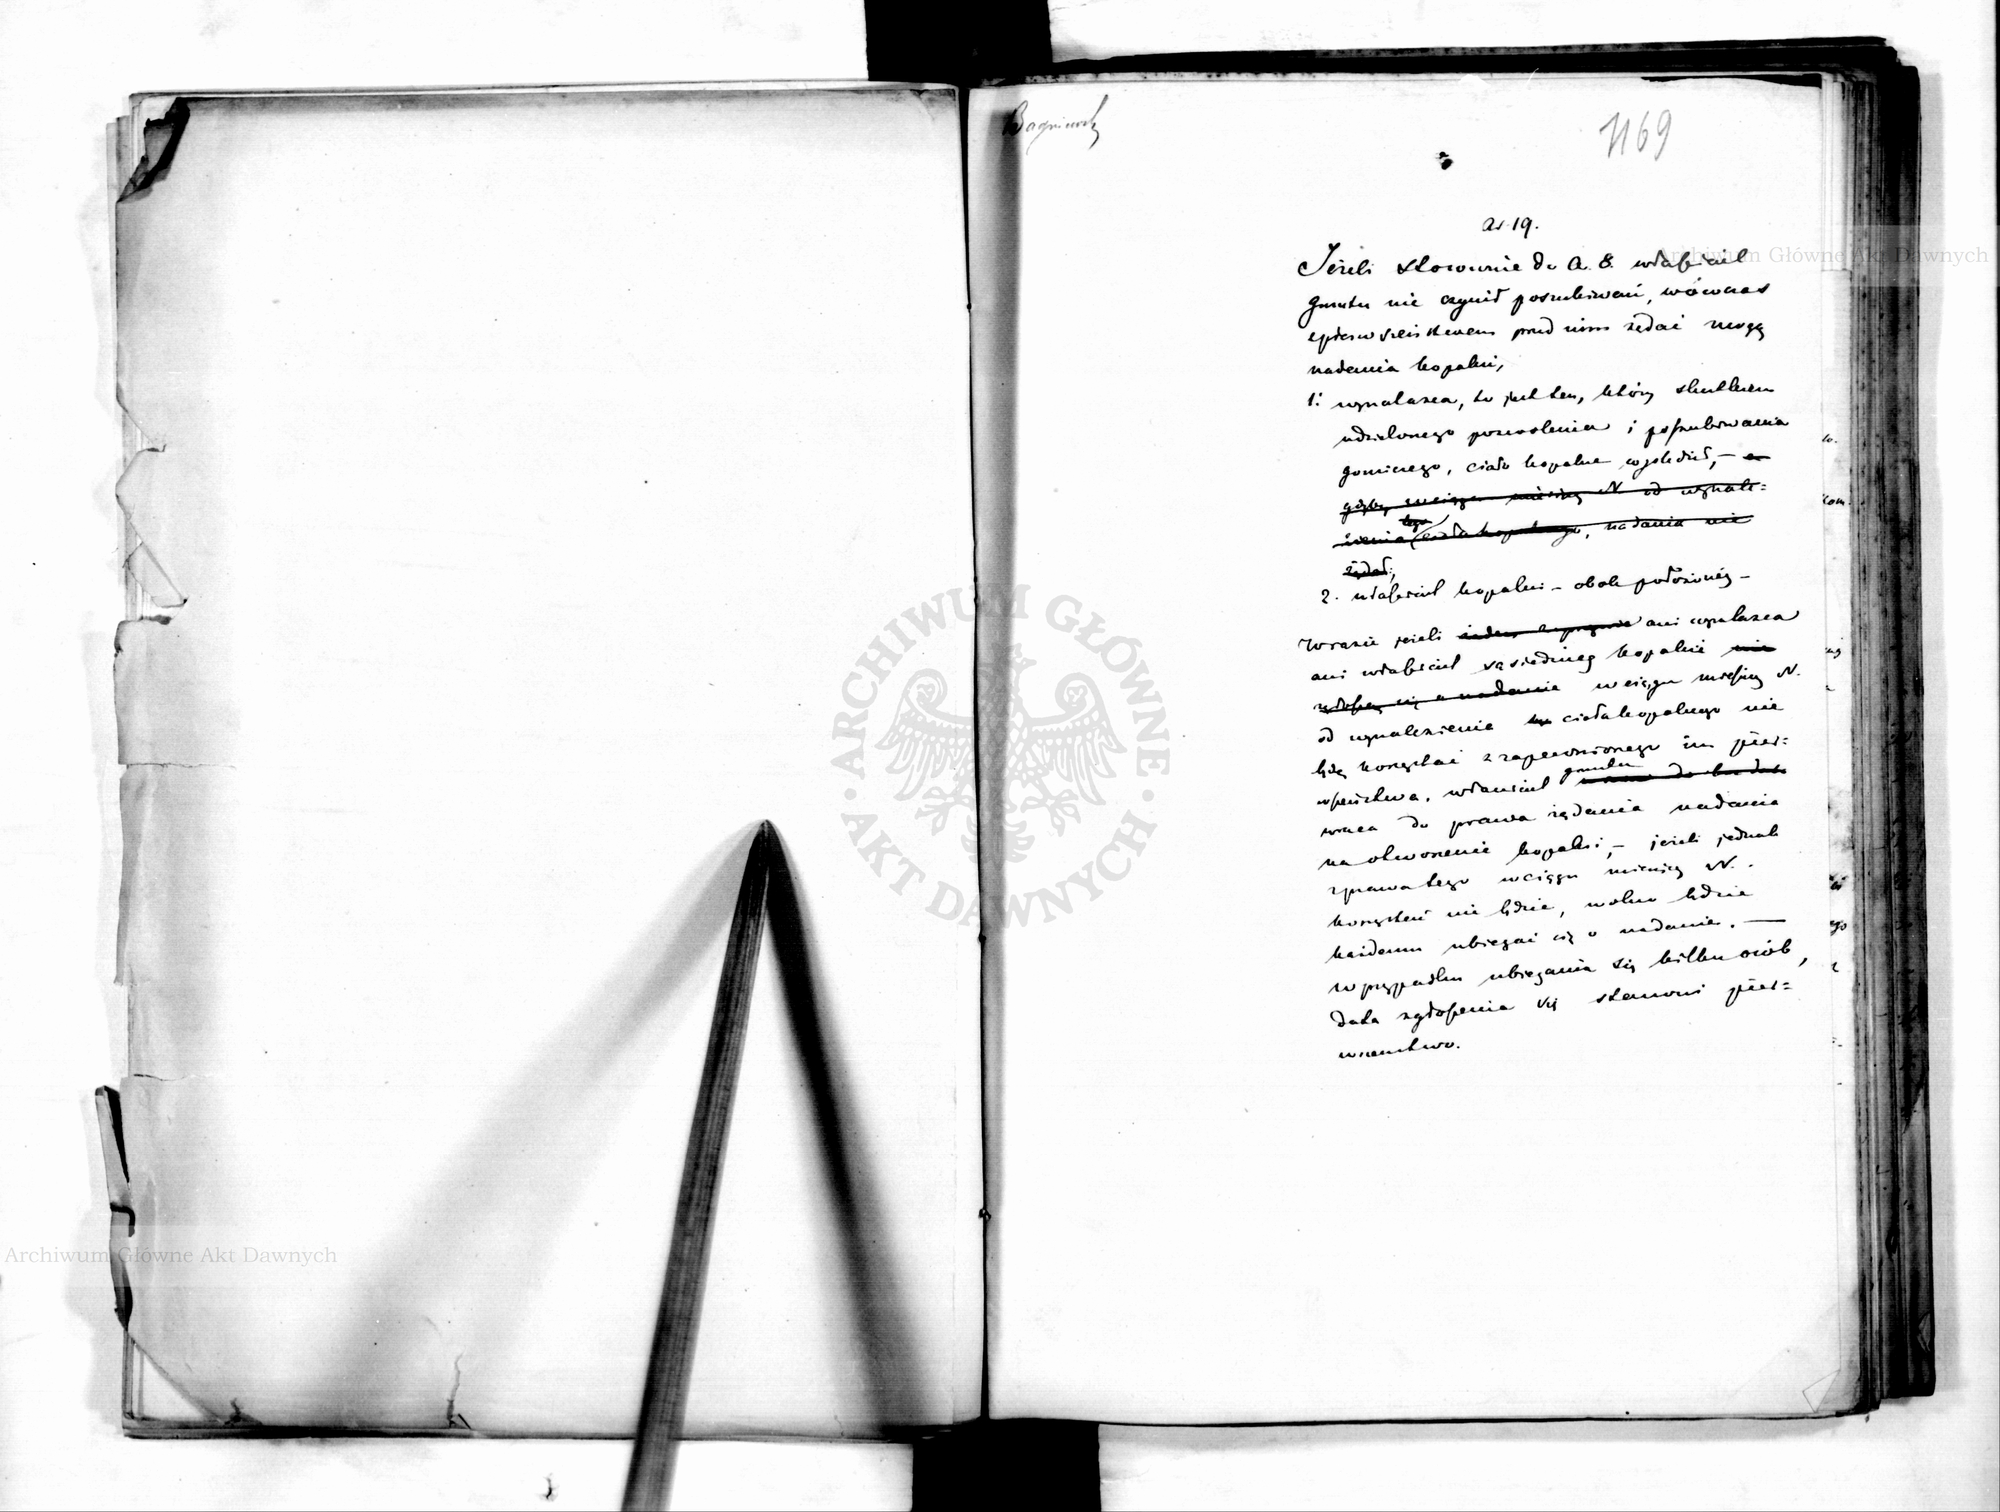 1169
Ar. 19.
Jeżeli stosownie do A. 8. właściciel
gruntu nie czynił poszukiwań, wówczas
z pierwszeństwem przed nim żądać mogą
nadania kopalni,
1: wynalazca, to jest ten, który skutkiem
udzielonego pozwolenia i poszukiwania
górniczego, ciało kopalne wyśledził, – a
gdyby w ciągu miesięcy N. od wynale=
zienia tego ciała kopalnego, nadania nie
żądał;
2. właściciel kopalni – obok położonéj –
W razie jeżeli ani wynalazca
ani właściciel sąsiedniej kopalni nie
zgłoszą się o nadanie w ciągu miesięcy N.
od wynalezienia ciała kopalnego nie
będą korzystać z zapewnionego im pier=
wszeństwa, właściciel gruntu
wraca do prawa żądania nadania
na otworzenie kopalni, – jeżeli jednak
z prawa tego w ciągu miesięcy N.
korzystać nie będzie, wolno będzie
każdemu ubiegać się o nadanie. —
W przypadku ubiegania się kilku osób,
data zgłoszenia się stanowi pier=
wszeństwo.
Archiwum Główne Akt Dawnych
ARCHIWUM GŁÓWNE
AKT DAWNYCH
Archiwum Główne Akt Dawnych